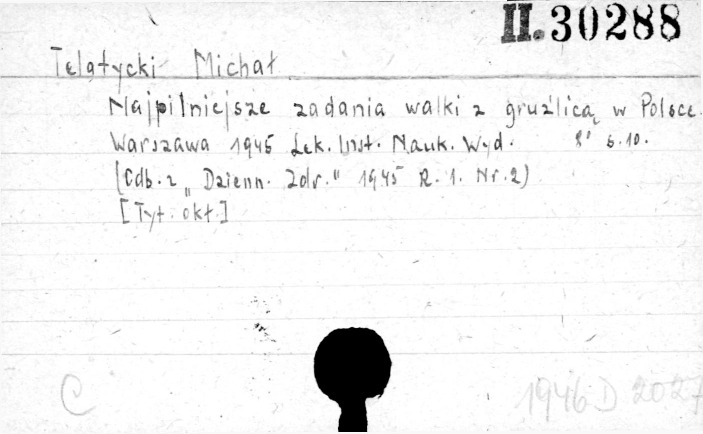 II.30288
Telatycki Michał
Najpilniejsze zadania walki z gruźlicą w Polsce.
Warszawa 1945 Lek. Inst. Nauk. Wyd. 8° s.10.
(Odb. z „Dzienn. Zdr." 1945 R. 1. Nr. 2)
[Tyt. okł.]
C 1946 D 2027